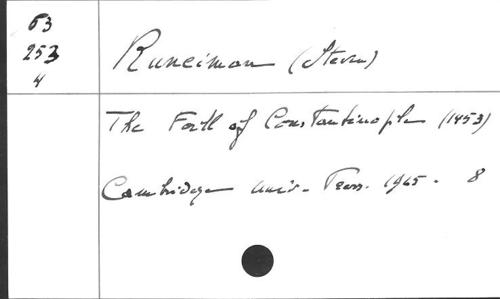 53
253
4
Runciman (Steven)
The Fall of Constantinople (1453)
Cambridge univ. Press. 1965. 8